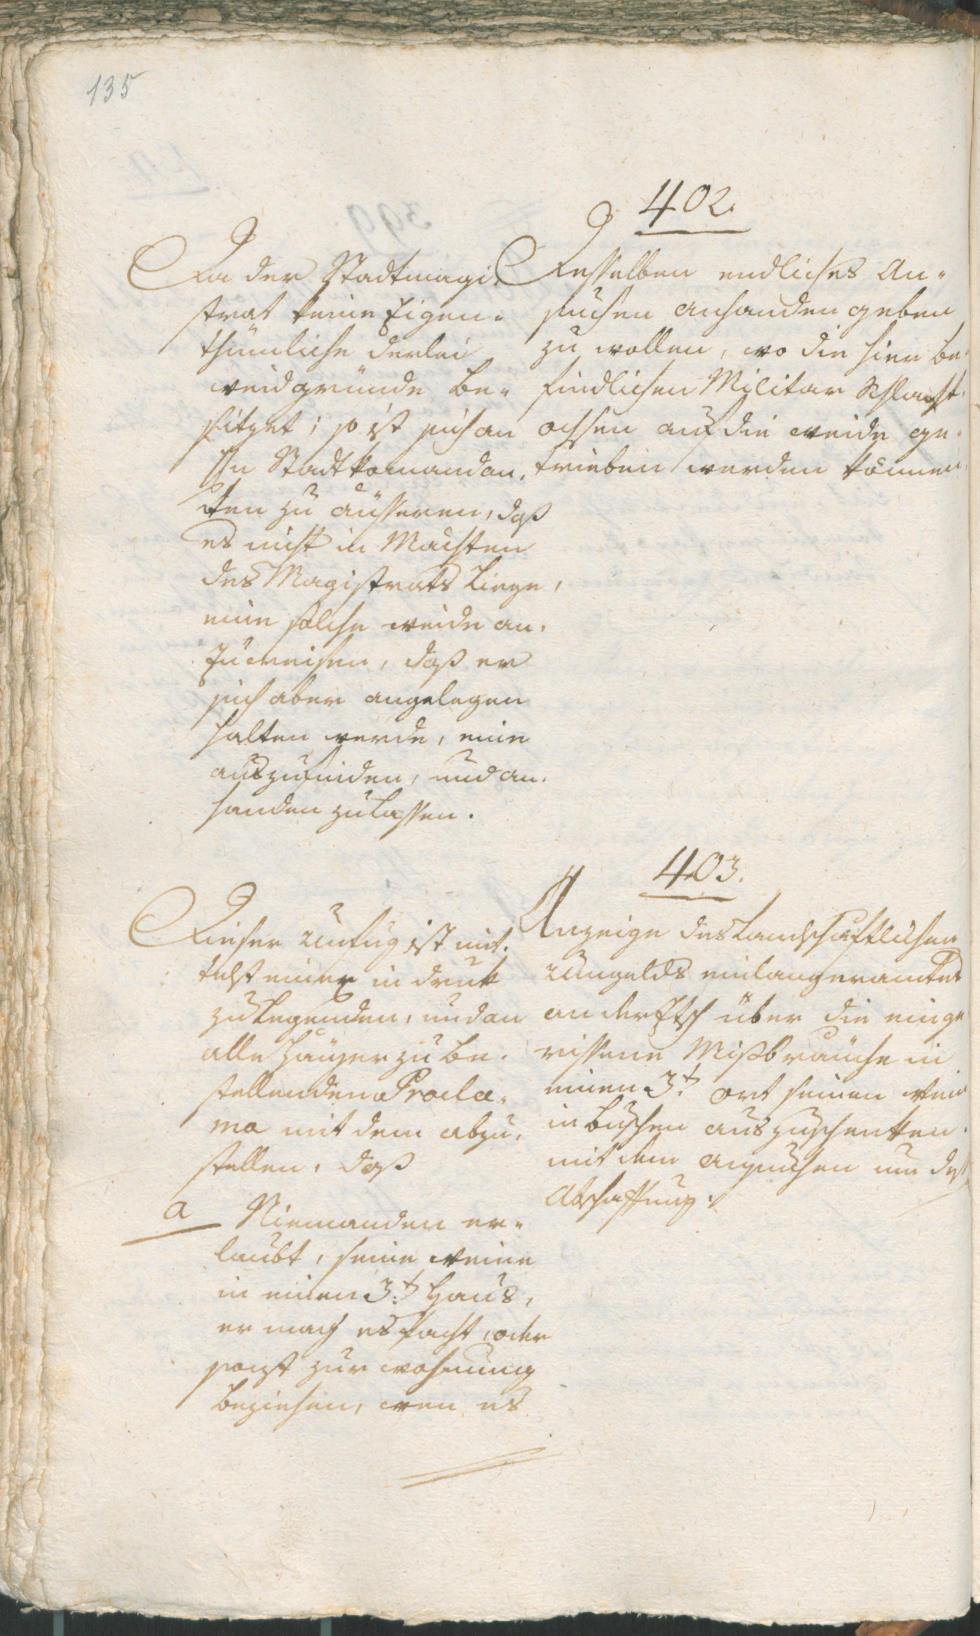 135
402.
Da der Stadtmagi-
strat keine Eigen-
thümliche derlei
weidgründe be-
sitzet; so ist sich an
Hn Stadtkomandan-
ten zu äusseren, daß
es nicht in Mächten
des Magistrats liege,
eine solche weide an-
zuweisen, daß er
sich aber angelegen
halten werde, eine
auszufinden, und an-
handen zu lassen.
Desselben endliches An-
suchen anhanden geben
zu wollen, wo die hier be-
findlichen Militar Schlacht-
ochsen auf die weide ge-
trieben werden können
403.
Dieser Unfug ist mit-
telst einer in druk
zu legenden, und an
alle Häuser zu be-
stellenden Procla-
ma mit dem abzu-
stellen, daß
a Niemanden er-
laubt, seine weine
in einen 3t. Haus,
er mag es Pacht, oder
sonst zur wohnung
beziehen, wen es
Anzeige des Landschaftlichen
Umgelds einlangeramtes
an der Etsch über die einge
rissene Missbräuche in
einen 3t. ort seinen wein
in Buschen auszuschenken
mit dem ansuchen um dessen
Abschaffung.